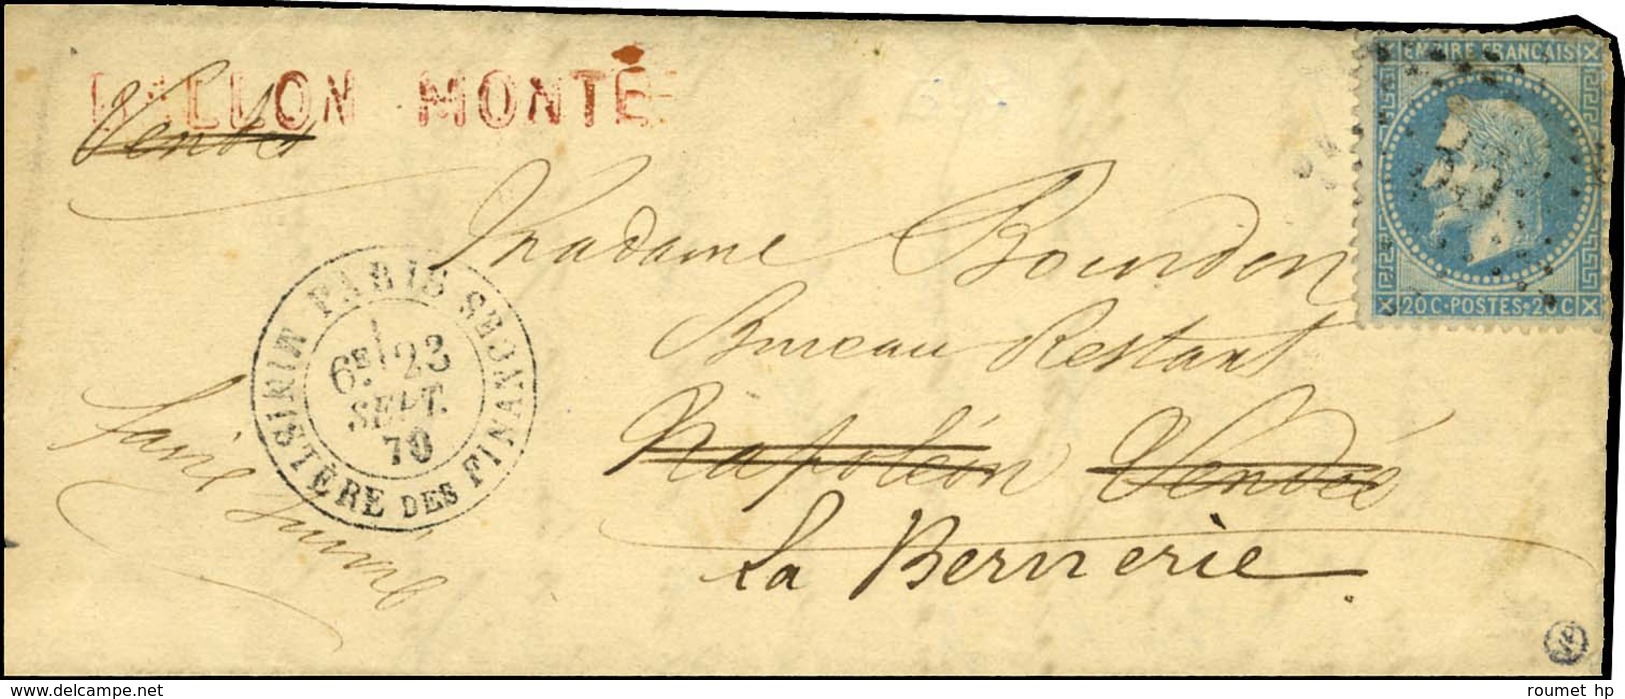 BALLON MONTÉ
Vendée
EMPIRE FRANÇAIS
20 C · POSTES · 20 C
Madame Bourdon
Bureau Restant
Napoléon Vendée
La Bernerie
PARIS SECONCES
MINISTÈRE DES FINANCES
6E 23
SEPT.
70
faire suivre
www.delcampe.net
roumet hp